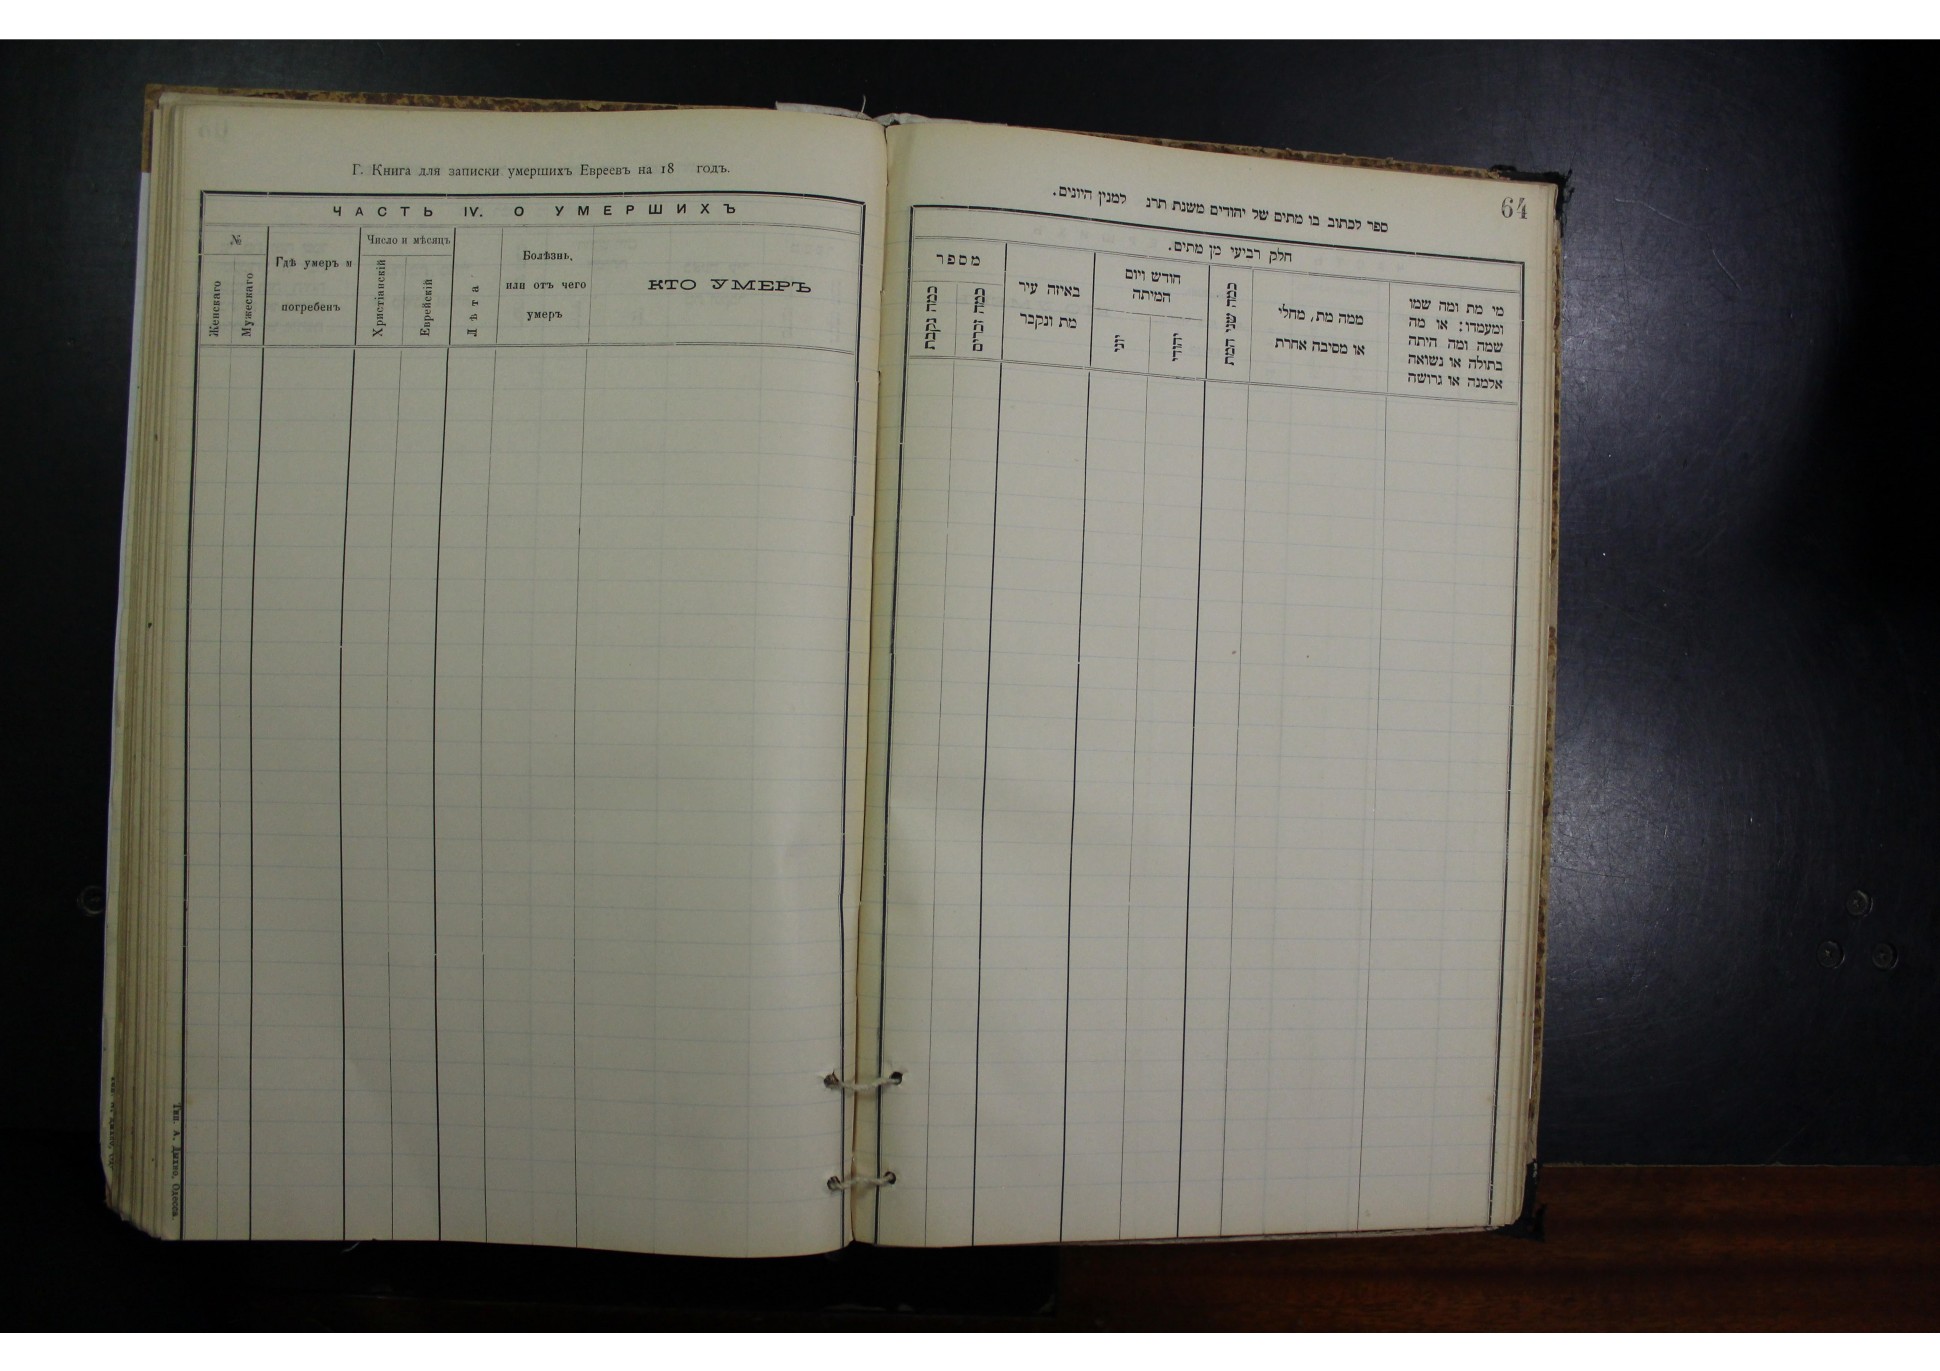 Г. Книга для записки умершихъ Евреевъ на 18 годъ.
ЧАСТЬ IV. О УМЕРШИХЪ
№
Женскаго
Мужескаго
Гдѣ умеръ и
погребенъ
Число и мѣсяцъ
Христіанскій
Еврейскій
Лѣта
Болѣзнь,
или отъ чего
умеръ
КТО УМЕРЪ
Тип. А. Дыхно, Одесса.
64
ספר לכתוב בו מתים של יהודים משנת תרנ למנין היונים.
חלק רביעי מן מתים.
מספר
כמה נקבות
כמה זכרים
באיזה עיר
מת ונקבר
חודש ויום
המיתה
יוני
יהודי
כמה שני המת
ממה מת, מחלי
או מסיבה אחרת
מי מת ומה שמו
ומעמדו: או מה
שמה ומה היתה
בתולה או נשואה
אלמנה או גרושה